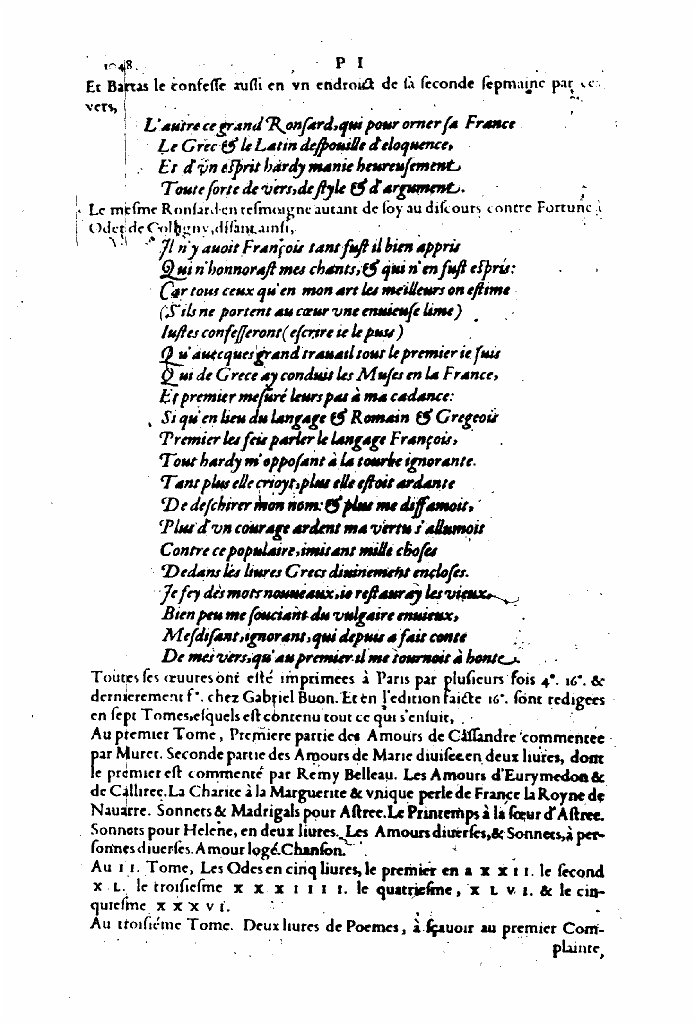 1048. P I
Et Bartas le confesse aussi en vn endroict de sa seconde sepmaine par ces
vers,
L'autre ce grand Ronsard, qui pour orner sa France
Le Grec & le Latin despouille d'eloquence,
Et d'vn esprit hardy manie heureusement
Toute sorte de vers, de style & d'argument.
Le mesme Ronsard en tesmoigne autant de soy au discours contre Fortune à
Odet de Colligny, disant ainsi,
Il n'y auoit François tant fust il bien appris
Qui n'honnorast mes chants, & qui n'en fust espris:
Car tous ceux qu'en mon art les meilleurs on estime
(S'ils ne portent au cœur vne enuieuse lime)
Iustes confesseront (escrire ie le puis)
Qu'auecques grand trauail tout le premier ie suis
Qui de Grece ay conduit les Muses en la France,
Et premier mesuré leurs pas à ma cadance:
Si qu'en lieu du langage & Romain & Gregeois
Premier les feis parler le langage François,
Tout hardy m'opposant à la tourbe ignorante.
Tant plus elle crioyt, plus elle estoit ardante
De deschirer mon nom: & plus me diffamoit,
Plus d'vn courage ardent ma vertu s'allumoit
Contre ce populaire, imitant mille choses
Dedans les liures Grecs diuinement encloses.
Je fey des mots nouueaux, ie restauray les vieux,
Bien peu me souciant du vulgaire enuieux,
Mesdisant, ignorant, qui depuis a fait conte
De mes vers, qu'au premier il me tournoit à honte.
Toutes ses œuures ont esté imprimees à Paris par plusieurs fois 4°. 16°. &
dernierement f°. chez Gabriel Buon. Et en l'edition faicte 16°. sont redigees
en sept Tomes, esquels est contenu tout ce qui s'ensuit,
Au premier Tome, Premiere partie des Amours de Cassandre commentee
par Muret. Seconde partie des Amours de Marie diuisee en deux liures, dont
le premier est commenté par Remy Belleau. Les Amours d'Eurymedon &
de Calliree. La Charite à la Marguerite & vnique perle de France la Royne de
Nauarre. Sonnets & Madrigals pour Astree. Le Printemps à la sœur d'Astree.
Sonnets pour Helene, en deux liures. Les Amours diuerses, & Sonnets, à per-
sonnes diuerses. Amour logé. Chanson.
Au II. Tome, Les Odes en cinq liures, le premier en a XXII. le second
XL. le troisiesme XXXIIII. le quatriesme, XLVI. & le cin-
quiesme XXXVI.
Au troisiéme Tome. Deux liures de Poemes, à sçauoir au premier Com-
plainte,